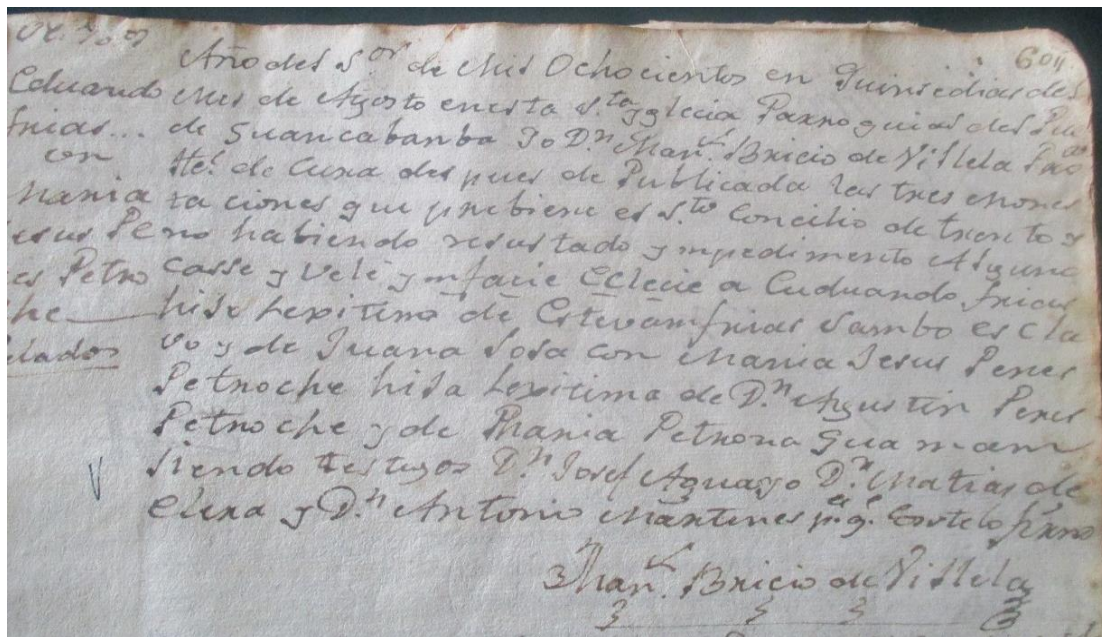 604
Año del S.or de Mil Ochocientos en Quinse dias del
Mes de Agosto en esta S.ta Yglecia Parroquial del Pu.o
de Guancabanba Yo D.n Man.l Bricio de Villela
de Cura despues de Publicada las tres
raciones que prebiene el S.to Concilio de trento y
no habiendo resultado ympedimento Alguno
Casse y Velé ynfacie Eclecie a Eduando frias
hiso Lexitimo de Estevan frias sambo escla
vo y de Juana Sosa con Maria Jesus Peres
Petroche hisa Lexitima de D.n Agustin Peres
Petroche y de Maria Petrona Guaman
siendo testigos D.n Josef Aguayo D.n Matias de
Elera y D.n Antonio Martines p.a q.e Coste lo firmo
Man.l Bricio de Villela
Eduando
frias...
con
Maria
Jesus Pe
res Petro
che
Velados